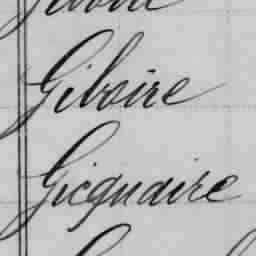 Giloire
Gicquaire